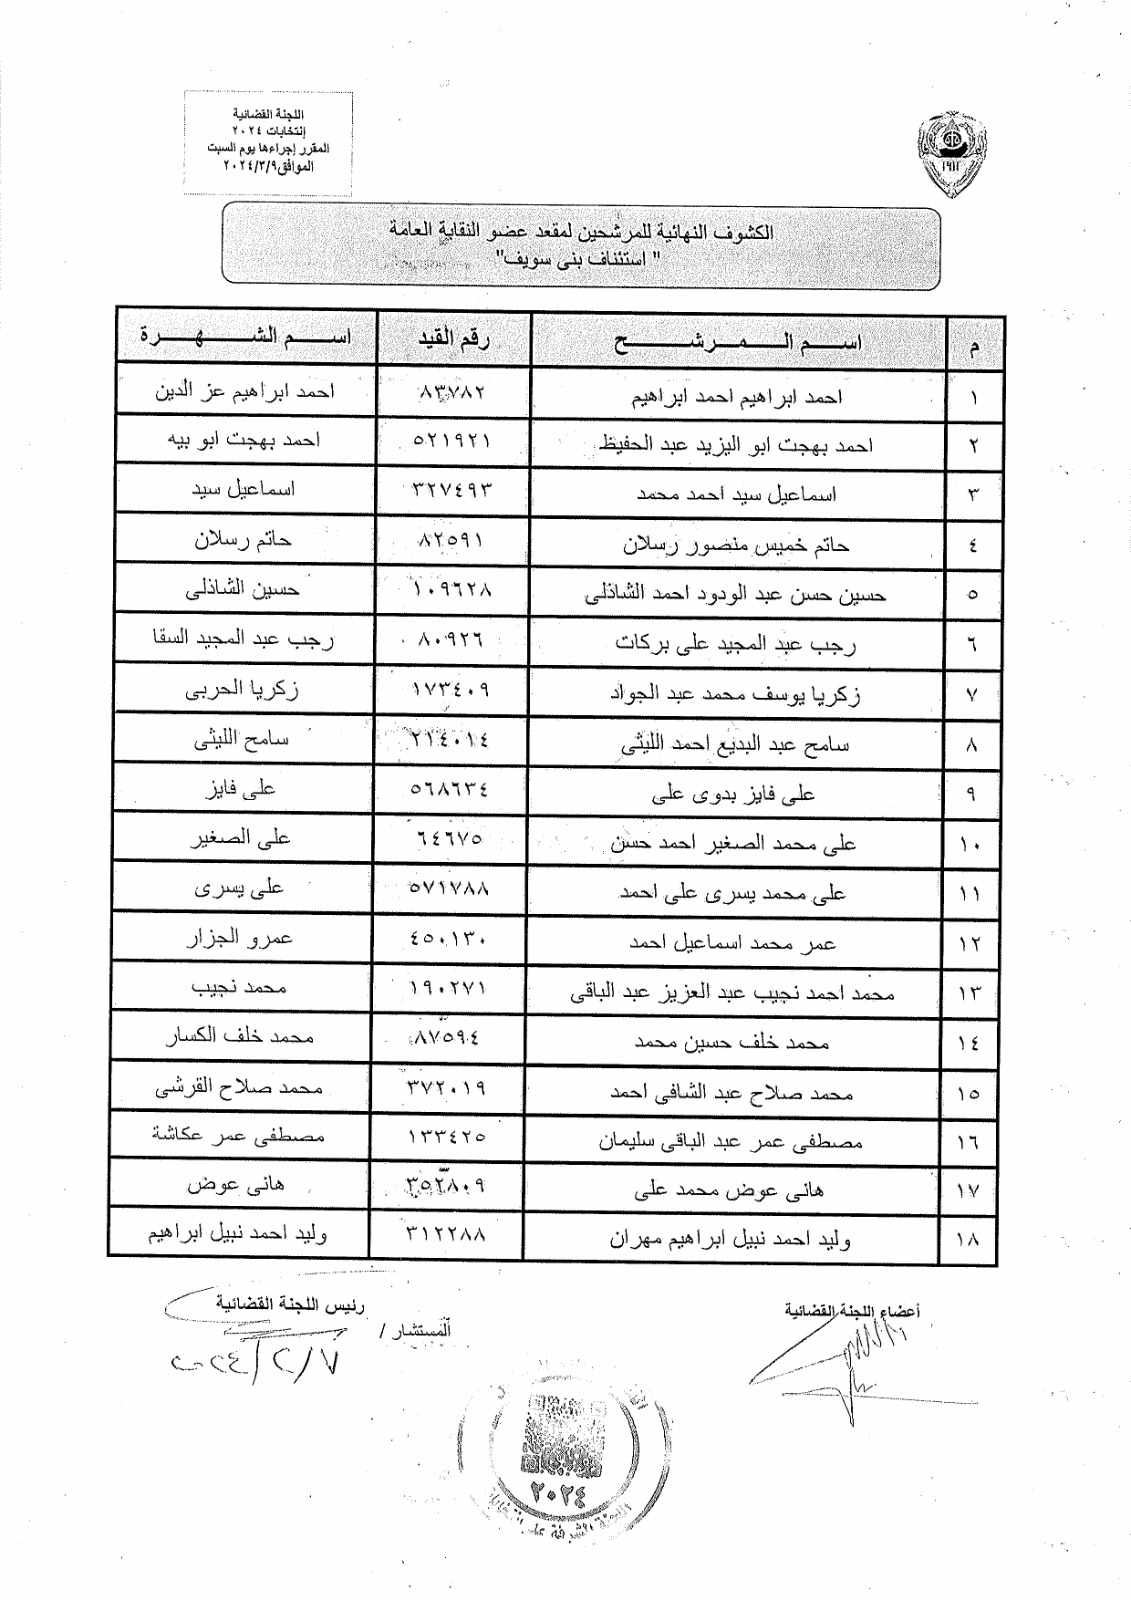 اللجنة القضائية
إنتخابات ٢٠٢٤
المقرر إجراءها يوم السبت
الموافق ٢٠٢٤/٣/٩
١٩١٢
الكشوف النهائية للمرشحين لمقعد عضو النقابة العامة
" استئناف بنى سويف"
م اسم المرشح رقم القيد اسم الشهرة
١ احمد ابراهيم احمد ابراهيم ٨٣٧٨٢ احمد ابراهيم عز الدين
٢ احمد بهجت ابو اليزيد عبد الحفيظ ٥٢١٩٢١ احمد بهجت ابو بيه
٣ اسماعيل سيد احمد محمد ٣٢٧٤٩٣ اسماعيل سيد
٤ حاتم خميس منصور رسلان ٨٢٥٩١ حاتم رسلان
٥ حسين حسن عبد الودود احمد الشاذلى ١٠٩٦٢٨ حسين الشاذلى
٦ رجب عبد المجيد على بركات ٨٠٩٢٦ رجب عبد المجيد السقا
٧ زكريا يوسف محمد عبد الجواد ١٧٣٤٠٩ زكريا الحربى
٨ سامح عبد البديع احمد الليثى ٢١٤٠١٤ سامح الليثى
٩ على فايز بدوى على ٥٦٨٦٣٤ على فايز
١٠ على محمد الصغير احمد حسن ٦٤٦٧٥ على الصغير
١١ على محمد يسرى على احمد ٥٧١٧٨٨ على يسرى
١٢ عمر محمد اسماعيل احمد ٤٥٠١٣٠ عمرو الجزار
١٣ محمد احمد نجيب عبد العزيز عبد الباقى ١٩٠٢٧١ محمد نجيب
١٤ محمد خلف حسين محمد ٨٧٥٩٤ محمد خلف الكسار
١٥ محمد صلاح عبد الشافى احمد ٣٧٢٠١٩ محمد صلاح القرشى
١٦ مصطفى عمر عبد الباقى سليمان ١٣٣٤٢٥ مصطفى عمر عكاشة
١٧ هانى عوض محمد على ٣٥٢٨٠٩ هانى عوض
١٨ وليد احمد نبيل ابراهيم مهران ٣١٢٢٨٨ وليد احمد نبيل ابراهيم
أعضاء اللجنة القضائية
رئيس اللجنة القضائية
المستشار /
٢٠٢٤/٢/٧
٢٠٢٤
اللجنة المشرفة على